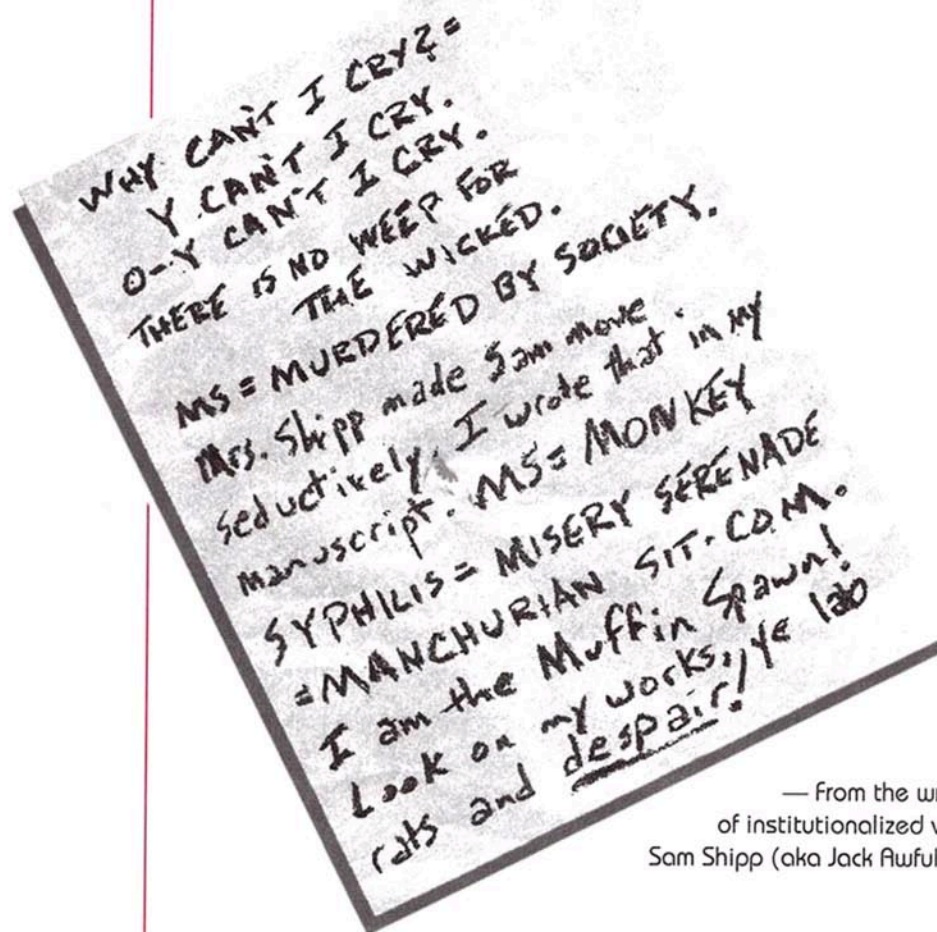 WHY CAN'T I CRY?=
Y CAN'T I CRY.
O-Y CAN'T I CRY.
THERE IS NO WEEP FOR
THE WICKED.
MS = MURDERED BY SOCIETY.
Mrs. Shipp made Sam move
seductively. I wrote that in my
manuscript. MS = MONKEY
SYPHILIS = MISERY SERENADE
= MANCHURIAN SIT-COM.
I am the Muffin Spawn!
Look on my works, ye lab
rats and despair!
— From the
of institutionalized
Sam Shipp (aka Jack